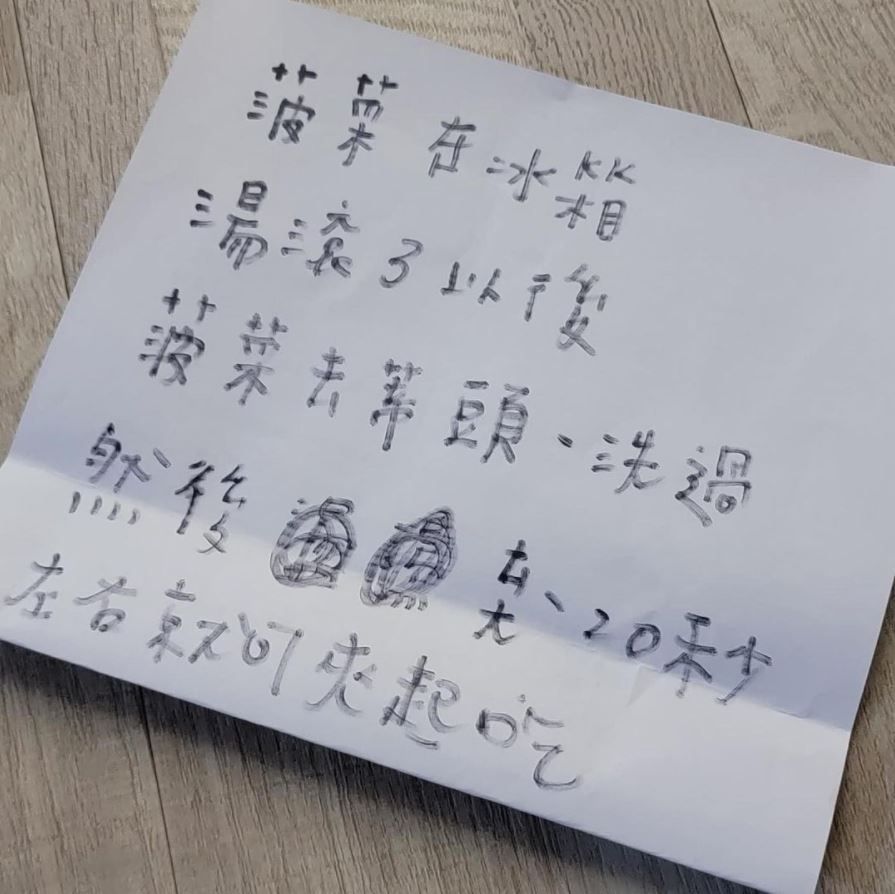 菠菜在冰箱
湯滾了以後
菠菜去蒂頭、洗過
然後 ㄊㄤˋ 20秒
左右就可夾起吃